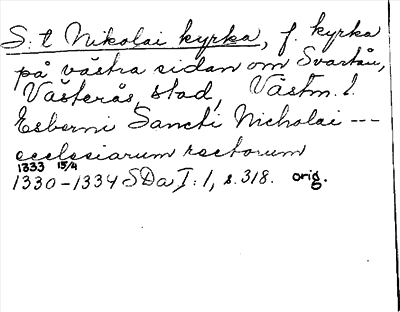 S:t Nikolai kyrka, f. kyrka
på västra sidan om Svartån,
Västerås stad, Västm. l.
Esberni Sancti Nicholai ---
ecclesiarum rectorum
1333 15/4
1330-1334 SDa I:1, s.318. orig.